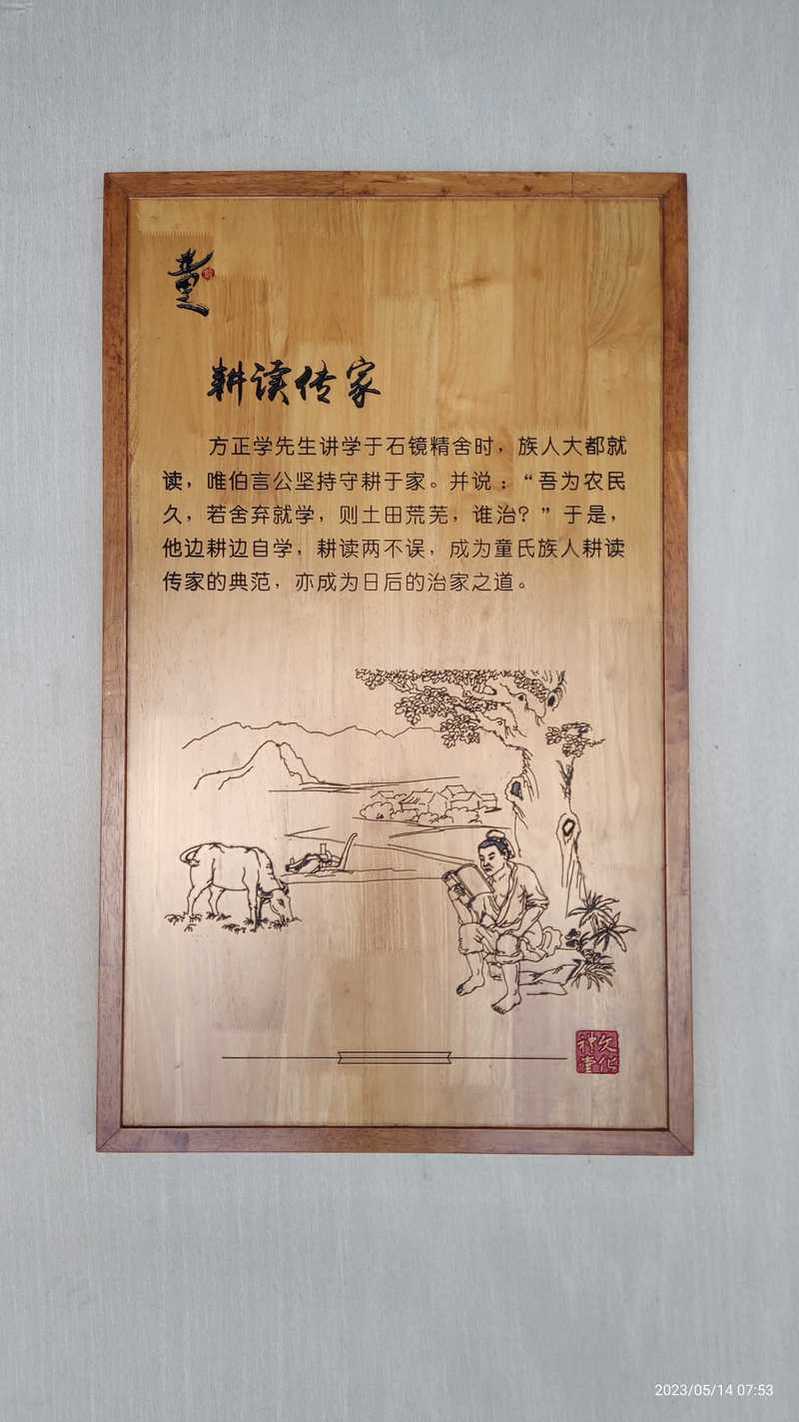 童
耕读传家
方正学先生讲学于石镜精舍时，族人大都就
读，唯伯言公坚持守耕于家。并说：“吾为农民
久，若舍弃就学，则土田荒芜，谁治？”于是，
他边耕边自学，耕读两不误，成为童氏族人耕读
传家的典范，亦成为日后的治家之道。
文化
礼堂
2023/05/14 07:53